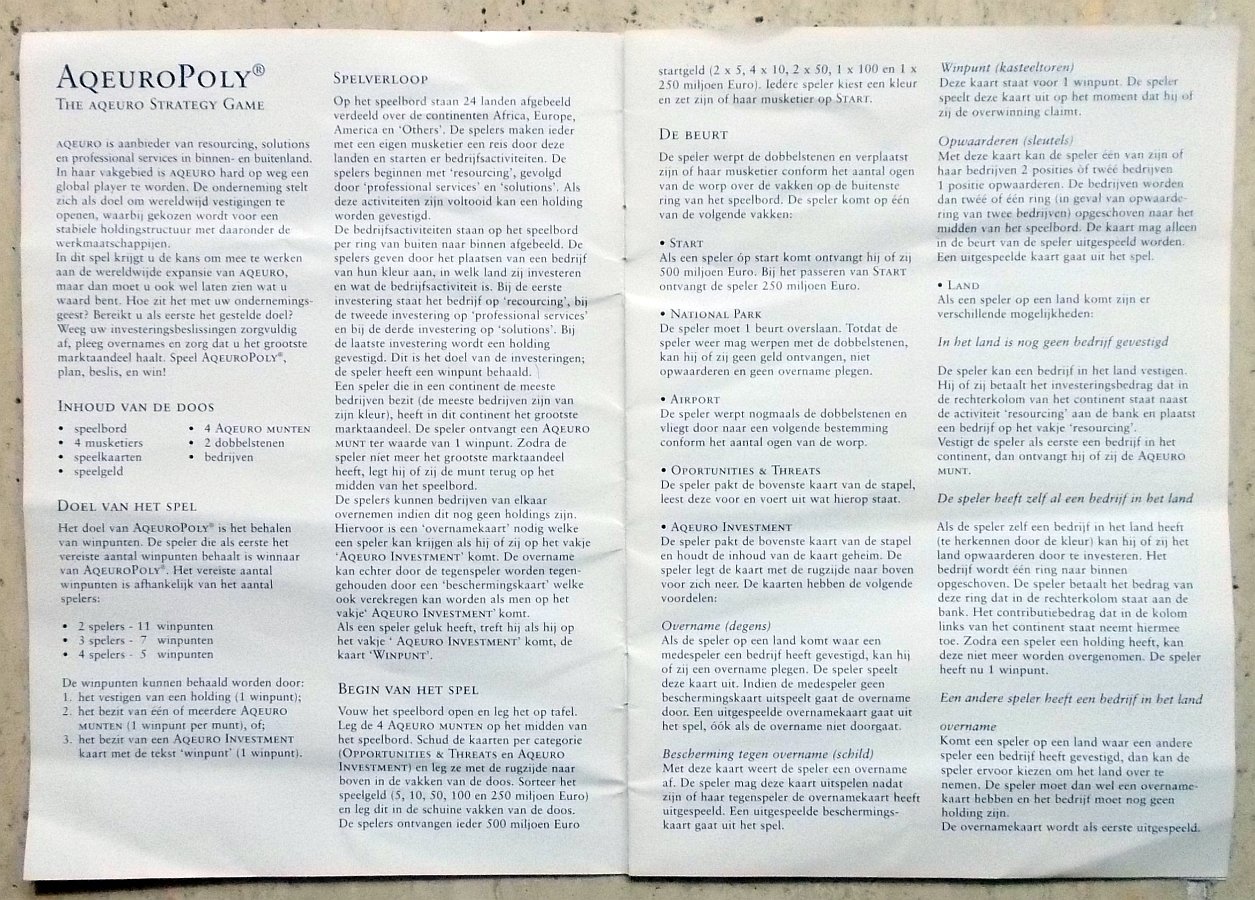 AQEUROPOLY®
THE AQEURO STRATEGY GAME
AQEURO is aanbieder van resourcing, solutions
en professional services in binnen- en buitenland.
In haar vakgebied is AQEURO hard op weg een
global player te worden. De onderneming stelt
zich als doel om wereldwijd vestigingen te
openen, waarbij gekozen wordt voor een
stabiele holdingstructuur met daaronder de
werkmaatschappijen.
In dit spel krijgt u de kans om mee te werken
aan de wereldwijde expansie van AQEURO,
maar dan moet u ook wel laten zien wat u
waard bent. Hoe zit het met uw ondernemings-
geest? Bereikt u als eerste het gestelde doel?
Weeg uw investeringsbeslissingen zorgvuldig
af, pleeg overnames en zorg dat u het grootste
marktaandeel haalt. Speel AQEUROPOLY®,
plan, beslis, en win!
INHOUD VAN DE DOOS
• speelbord
• 4 musketiers
• speelkaarten
• speelgeld
• 4 AQEURO MUNTEN
• 2 dobbelstenen
• bedrijven
DOEL VAN HET SPEL
Het doel van AQEUROPOLY® is het behalen
van winpunten. De speler die als eerste het
vereiste aantal winpunten behaalt is winnaar
van AQEUROPOLY®. Het vereiste aantal
winpunten is afhankelijk van het aantal
spelers:
• 2 spelers - 11 winpunten
• 3 spelers - 7 winpunten
• 4 spelers - 5 winpunten
De winpunten kunnen behaald worden door:
1. het vestigen van een holding (1 winpunt);
2. het bezit van één of meerdere AQEURO
MUNTEN (1 winpunt per munt), of;
3. het bezit van een AQEURO INVESTMENT
kaart met de tekst 'winpunt' (1 winpunt).
SPELVERLOOP
Op het speelbord staan 24 landen afgebeeld
verdeeld over de continenten Africa, Europe,
America en 'Others'. De spelers maken ieder
met een eigen musketier een reis door deze
landen en starten er bedrijfsactiviteiten. De
spelers beginnen met 'resourcing', gevolgd
door 'professional services' en 'solutions'. Als
deze activiteiten zijn voltooid kan een holding
worden gevestigd.
De bedrijfsactiviteiten staan op het speelbord
per ring van buiten naar binnen afgebeeld. De
spelers geven door het plaatsen van een bedrijf
van hun kleur aan, in welk land zij investeren
en wat de bedrijfsactiviteit is. Bij de eerste
investering staat het bedrijf op 'recourcing', bij
de tweede investering op 'professional services'
en bij de derde investering op 'solutions'. Bij
de laatste investering wordt een holding
gevestigd. Dit is het doel van de investeringen;
de speler heeft een winpunt behaald.
Een speler die in een continent de meeste
bedrijven bezit (de meeste bedrijven zijn van
zijn kleur), heeft in dit continent het grootste
marktaandeel. De speler ontvangt een AQEURO
MUNT ter waarde van 1 winpunt. Zodra de
speler niet meer het grootste marktaandeel
heeft, legt hij of zij de munt terug op het
midden van het speelbord.
De spelers kunnen bedrijven van elkaar
overnemen indien dit nog geen holdings zijn.
Hiervoor is een 'overnamekaart' nodig welke
een speler kan krijgen als hij of zij op het vakje
'AQEURO INVESTMENT' komt. De overname
kan echter door de tegenspeler worden tegen-
gehouden door een 'beschermingskaart' welke
ook verekregen kan worden als men op het
vakje' AQEURO INVESTMENT' komt.
Als een speler geluk heeft, treft hij als hij op
het vakje ' AQEURO INVESTMENT' komt, de
kaart 'WINPUNT'.
BEGIN VAN HET SPEL
Vouw het speelbord open en leg het op tafel.
Leg de 4 AQEURO MUNTEN op het midden van
het speelbord. Schud de kaarten per categorie
(OPPORTUNITIES & THREATS en AQEURO
INVESTMENT) en leg ze met de rugzijde naar
boven in de vakken van de doos. Sorteer het
speelgeld (5, 10, 50, 100 en 250 miljoen Euro)
en leg dit in de schuine vakken van de doos.
De spelers ontvangen ieder 500 miljoen Euro
startgeld (2 x 5, 4 x 10, 2 x 50, 1 x 100 en 1 x
250 miljoen Euro). Iedere speler kiest een kleur
en zet zijn of haar musketier op START.
DE BEURT
De speler werpt de dobbelstenen en verplaatst
zijn of haar musketier conform het aantal ogen
van de worp over de vakken op de buitenste
ring van het speelbord. De speler komt op één
van de volgende vakken:
• START
Als een speler óp start komt ontvangt hij of zij
500 miljoen Euro. Bij het passeren van START
ontvangt de speler 250 miljoen Euro.
• NATIONAL PARK
De speler moet 1 beurt overslaan. Totdat de
speler weer mag werpen met de dobbelstenen,
kan hij of zij geen geld ontvangen, niet
opwaarderen en geen overname plegen.
• AIRPORT
De speler werpt nogmaals de dobbelstenen en
vliegt door naar een volgende bestemming
conform het aantal ogen van de worp.
• OPORTUNITIES & THREATS
De speler pakt de bovenste kaart van de stapel,
leest deze voor en voert uit wat hierop staat.
• AQEURO INVESTMENT
De speler pakt de bovenste kaart van de stapel
en houdt de inhoud van de kaart geheim. De
speler legt de kaart met de rugzijde naar boven
voor zich neer. De kaarten hebben de volgende
voordelen:
Overname (degens)
Als de speler op een land komt waar een
medespeler een bedrijf heeft gevestigd, kan hij
of zij een overname plegen. De speler speelt
deze kaart uit. Indien de medespeler geen
beschermingskaart uitspeelt gaat de overname
door. Een uitgespeelde overnamekaart gaat uit
het spel, óók als de overname niet doorgaat.
Bescherming tegen overname (schild)
Met deze kaart weert de speler een overname
af. De speler mag deze kaart uitspelen nadat
zijn of haar tegenspeler de overnamekaart heeft
uitgespeeld. Een uitgespeelde beschermings-
kaart gaat uit het spel.
Winpunt (kasteeltoren)
Deze kaart staat voor 1 winpunt. De speler
speelt deze kaart uit op het moment dat hij of
zij de overwinning claimt.
Opwaarderen (sleutels)
Met deze kaart kan de speler één van zijn of
haar bedrijven 2 posities óf twéé bedrijven
1 positie opwaarderen. De bedrijven worden
dan twéé of één ring (in geval van opwaarde-
ring van twee bedrijven) opgeschoven naar het
midden van het speelbord. De kaart mag alleen
in de beurt van de speler uitgespeeld worden.
Een uitgespeelde kaart gaat uit het spel.
• LAND
Als een speler op een land komt zijn er
verschillende mogelijkheden:
In het land is nog geen bedrijf gevestigd
De speler kan een bedrijf in het land vestigen.
Hij of zij betaalt het investeringsbedrag dat in
de rechterkolom van het continent staat naast
de activiteit 'resourcing' aan de bank en plaatst
een bedrijf op het vakje 'resourcing'.
Vestigt de speler als eerste een bedrijf in het
continent, dan ontvangt hij of zij de AQEURO
MUNT.
De speler heeft zelf al een bedrijf in het land
Als de speler zelf een bedrijf in het land heeft
(te herkennen door de kleur) kan hij of zij het
land opwaarderen door te investeren. Het
bedrijf wordt één ring naar binnen
opgeschoven. De speler betaalt het bedrag van
deze ring dat in de rechterkolom staat aan de
bank. Het contributiebedrag dat in de kolom
links van het continent staat neemt hiermee
toe. Zodra een speler een holding heeft, kan
deze niet meer worden overgenomen. De speler
heeft nu 1 winpunt.
Een andere speler heeft een bedrijf in het land
overname
Komt een speler op een land waar een andere
speler een bedrijf heeft gevestigd, dan kan de
speler ervoor kiezen om het land over te
nemen. De speler moet dan wel een overname-
kaart hebben en het bedrijf moet nog geen
holding zijn.
De overnamekaart wordt als eerste uitgespeeld.